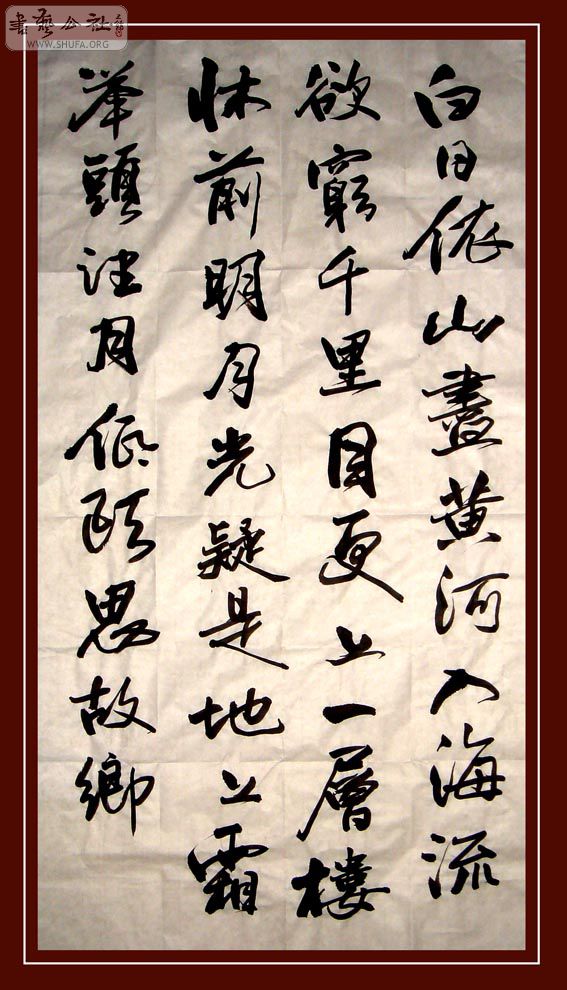 書藝公社
WWW.SHUFA.ORG
白日依山盡黄河入海流
欲窮千里目更上一層樓
牀前明月光疑是地上霜
举頭望月低頭思故鄉